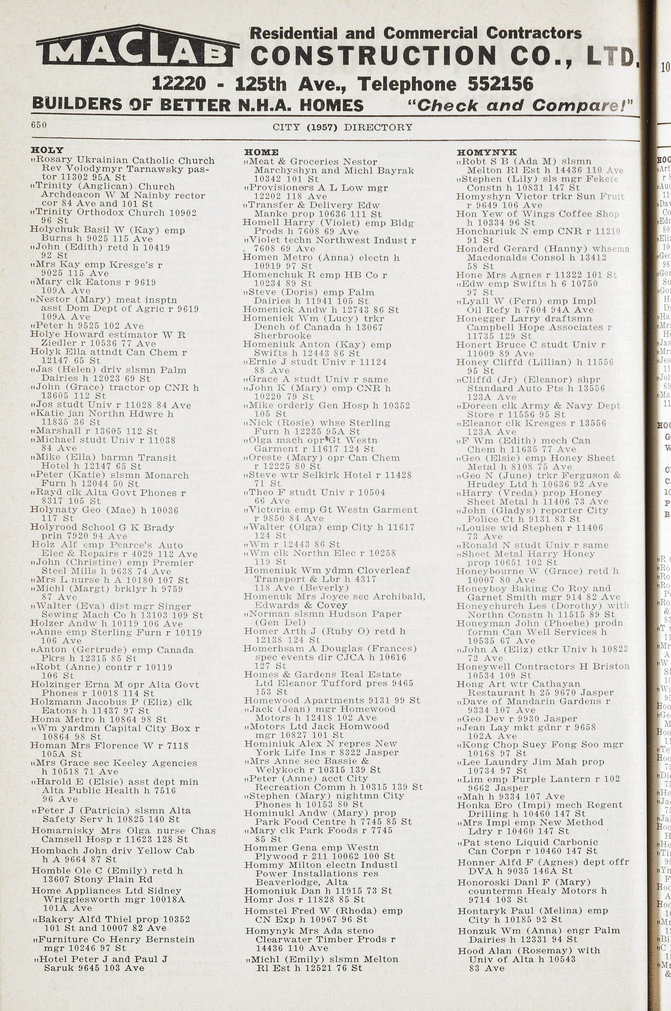 MACLAB
Residential and Commercial Contractors
CONSTRUCTION CO., LTD.
12220 - 125th Ave., Telephone 552156
BUILDERS OF BETTER N.H.A. HOMES "Check and Compare!"
650
CITY (1957) DIRECTORY
HOLY
"Rosary Ukrainian Catholic Church
Rev Volodymyr Tarnawsky pas-
tor 11302 95A St
"Trinity (Anglican) Church
Archdeacon W M Nainby rector
cor 84 Ave and 101 St
"Trinity Orthodox Church 10902
96 St
Holychuk Basil W (Kay) emp
Burns h 9025 115 Ave
"John (Edith) retd h 10419
92 St
"Mrs Kay emp Kresge's r
9025 115 Ave
"Mary clk Eatons r 9619
109A Ave
"Nestor (Mary) meat insptn
asst Dom Dept of Agric r 9619
109A Ave
"Peter h 9525 102 Ave
Holye Howard estimator W R
Ziedler r 10536 77 Ave
Holyk Ella attndt Can Chem r
12147 65 St
"Jas (Helen) driv slsmn Palm
Dairies h 12023 69 St
"John (Grace) tractor op CNR h
13605 112 St
"Jos studt Univ r 11028 84 Ave
"Katie jan Northn Hdwre h
11835 36 St
"Marshall r 13605 112 St
"Michael studt Univ r 11038
84 Ave
"Mike (Ella) barmn Transit
Hotel h 12147 65 St
"Peter (Katie) slsmn Monarch
Furn h 12044 50 St
"Rayd clk Alta Govt Phones r
8317 105 St
Holynaty Geo (Mae) h 10036
117 St
Holyrood School G K Brady
prin 7920 94 Ave
Holz Alf emp Pearce's Auto
Elec & Repairs r 4029 112 Ave
"John (Christine) emp Premier
Steel Mills h 9638 74 Ave
"Mrs L nurse h A 10180 107 St
"Michl (Margt) brklyr h 9759
87 Ave
"Walter (Eva) dist mgr Singer
Sewing Mach Co h 13103 109 St
Holzer Andw h 10119 106 Ave
"Anne emp Sterling Furn r 10119
106 Ave
"Anton (Gertrude) emp Canada
Pkrs h 12315 85 St
"Robt (Anne) contr r 10119
106 St
Holzinger Erna M opr Alta Govt
Phones r 10018 114 St
Holzmann Jacobus P (Eliz) clk
Eatons h 11437 97 St
Homa Metro h 10864 98 St
"Wm yardmn Capital City Box r
10864 98 St
Homan Mrs Florence W r 7118
105A St
"Mrs Grace sec Keeley Agencies
h 10518 71 Ave
"Harold E (Elsie) asst dept min
Alta Public Health h 7516
96 Ave
"Peter J (Patricia) slsmn Alta
Safety Serv h 10825 140 St
Homarnisky Mrs Olga nurse Chas
Camsell Hosp r 11623 128 St
Hombach John driv Yellow Cab
h A 9664 87 St
Homble Ole C (Emily) retd h
13607 Stony Plain Rd
Home Appliances Ltd Sidney
Wrigglesworth mgr 10018A
101A Ave
"Bakery Alfd Thiel prop 10352
101 St and 10007 82 Ave
"Furniture Co Henry Bernstein
mgr 10246 97 St
"Hotel Peter J and Paul J
Saruk 9645 103 Ave
HOME
"Meat & Groceries Nestor
Marchyshyn and Michl Bayrak
10342 101 St
"Provisioners A L Low mgr
12202 118 Ave
"Transfer & Delivery Edw
Manke prop 10636 111 St
Homell Harry (Violet) emp Bldg
Prods h 7608 69 Ave
"Violet techn Northwest Indust r
7608 69 Ave
Homen Metro (Anna) electn h
10919 97 St
Homenchuk R emp HB Co r
10234 89 St
"Steve (Doris) emp Palm
Dairies h 11941 105 St
Homenick Andw h 12743 86 St
Homeniek Wm (Lucy) trkr
Dench of Canada h 13067
Sherbrooke
Homeniuk Anton (Kay) emp
Swifts h 12443 86 St
"Ernie J studt Univ r 11124
88 Ave
"Grace A studt Univ r same
"John K (Mary) emp CNR h
10220 79 St
"Mike orderly Gen Hosp h 10352
105 St
"Nick (Rosie) whse Sterling
Furn h 12235 95A St
"Olga mach opr Gt Westn
Garment r 11617 124 St
"Oreste (Mary) opr Can Chem
r 12225 80 St
"Steve wtr Selkirk Hotel r 11428
71 St
"Theo F studt Univ r 10504
66 Ave
"Victoria emp Gt Westn Garment
r 9850 84 Ave
"Walter (Olga) emp City h 11617
124 St
"Wm r 12443 86 St
"Wm clk Northn Elec r 10258
119 St
Homeniuk Wm ydmn Cloverleaf
Transport & Lbr h 4317
118 Ave (Beverly)
Homenuk Mrs Joyce sec Archibald,
Edwards & Covey
"Norman slsmn Hudson Paper
(Gen Del)
Homer Arth J (Ruby O) retd h
12138 124 St
Homerhsam A Douglas (Frances)
spec events dir CJCA h 10616
127 St
Homes & Gardens Real Estate
Ltd Eleanor Tufford pres 9465
153 St
Homewood Apartments 9131 99 St
"Jack (Jean) mgr Homewood
Motors h 12418 102 Ave
"Motors Ltd Jack Homwood
mgr 10827 101 St
Hominiuk Alex N repres New
York Life Ins r 8322 Jasper
"Mrs Anne sec Bassie &
Welykoch r 10315 139 St
"Peter (Anne) acct City
Recreation Comm h 10315 139 St
"Stephen (Mary) nightmn City
Phones h 10153 80 St
Hominukl Andw (Mary) prop
Park Food Centre h 7745 85 St
"Mary clk Park Foods r 7745
85 St
Hommer Gena emp Westn
Plywood r 211 10062 100 St
Hommy Milton electn Industl
Power Installations res
Beaverlodge, Alta
Homoniuk Dan h 11915 73 St
Homr Jos r 11828 85 St
Homstel Fred W (Rhoda) emp
CN Exp h 10967 96 St
Homynyk Mrs Ada steno
Clearwater Timber Prods r
14436 110 Ave
"Michl (Emily) slsmn Melton
Rl Est h 12521 76 St
HOMYNYK
"Robt S B (Ada M) slsmn
Melton Rl Est h 14436 110 Ave
"Stephen (Lily) sls mgr Fekete
Constn h 10831 147 St
Homyshyn Victor trkr Sun Fruit
r 9649 106 Ave
Hon Yew of Wings Coffee Shop
h 10334 96 St
Honchariuk N emp CNR r 11210
91 St
Honderd Gerard (Hanny) whsemn
Macdonalds Consol h 13412
58 St
Hone Mrs Agnes r 11322 101 St
"Edw emp Swifts h 6 10750
97 St
"Lyall W (Fern) emp Impl
Oil Refy h 7604 94A Ave
Honegger Larry draftsmn
Campbell Hope Associates r
11735 129 St
Honert Bruce C studt Univ r
11009 89 Ave
Honey Cliffd (Lillian) h 11556
95 St
"Cliffd (Jr) (Eleanor) shpr
Standard Auto Pts h 13556
123A Ave
"Doreen clk Army & Navy Dept
Store r 11556 95 St
"Eleanor clk Kresges r 13556
123A Ave
"F Wm (Edith) mech Can
Chem h 11635 77 Ave
"Geo (Elsie) emp Honey Sheet
Metal h 8108 75 Ave
"Geo N (June) trkr Ferguson &
Hrudey Ltd h 10636 92 Ave
"Harry (Vreda) prop Honey
Sheet Metal h 11406 73 Ave
"John (Gladys) reporter City
Police Ct h 9131 83 St
"Louise wid Stephen r 11406
73 Ave
"Ronald N studt Univ r same
"Sheet Metal Harry Honey
prop 10651 102 St
Honeybourne W (Grace) retd h
10007 80 Ave
Honeyboy Baking Co Roy and
Garnet Smith mgr 914 82 Ave
Honeychurch Les (Dorothy) with
Northn Constn h 11515 89 St
Honeyman John (Phoebe) prodn
formn Can Well Services h
10535 67 Ave
"John A (Eliz) ctkr Univ h 10822
72 Ave
Honeywell Contractors H Briston
10534 109 St
Hong Art wtr Cathayan
Restaurant h 25 9670 Jasper
"Dave of Mandarin Gardens r
9334 107 Ave
"Geo Dev r 9930 Jasper
"Jean Lay mkt gdnr r 9658
102A Ave
"Kong Chop Suey Fong Soo mgr
10168 97 St
"Lee Laundry Jim Mah prop
10734 97 St
"Lim emp Purple Lantern r 102
9662 Jasper
"Mah h 9334 107 Ave
Honka Ero (Impi) mech Regent
Drilling h 10460 147 St
"Mrs Impi emp New Method
Ldry r 10460 147 St
"Pat steno Liquid Carbonic
Can Corpn r 10460 147 St
Honner Alfd F (Agnes) dept offr
DVA h 9035 146A St
Honoroski Danl F (Mary)
countermn Healy Motors h
9714 103 St
Hontaryk Paul (Melina) emp
City h 10185 92 St
Honzuk Wm (Anna) engr Palm
Dairies h 12331 94 St
Hood Alan (Rosemay) with
Univ of Alta h 10543
83 Ave